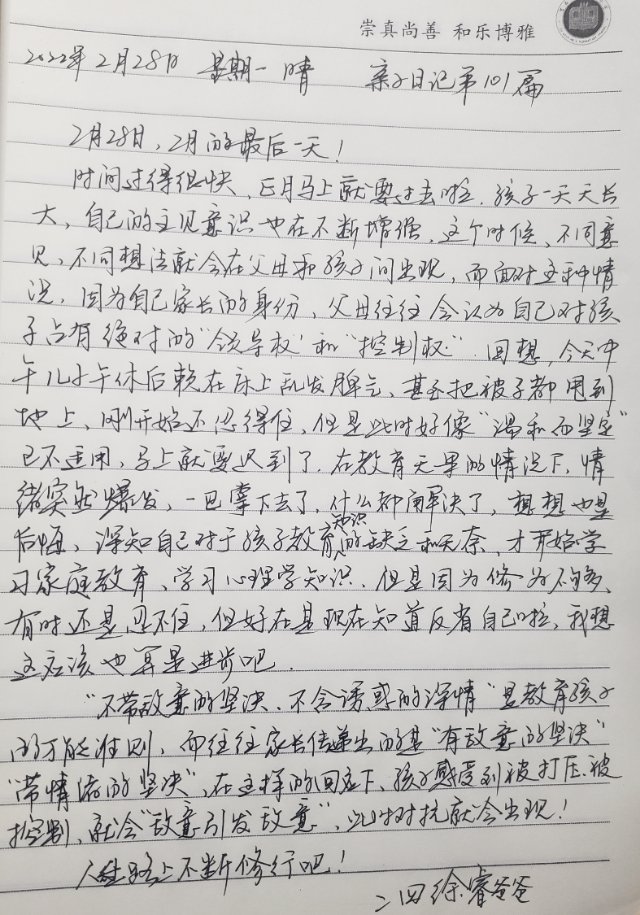 崇真尚善 和乐博雅
2022年2月28日 星期一 晴 亲子日记第101篇
2月28日，2月的最后一天！
时间过得很快，正月马上就要过去啦，孩子一天天长
大，自己的主见意识也在不断增强，这个时候，不同意
见，不同想法就会在父母和孩子间出现，而面对这种情
况，因为自己家长的身份，父母往往会认为自己对孩
子占有绝对的“领导权”和“控制权”。回想，今天中
午儿子午休后赖在床上乱发脾气，甚至把被子都甩到
地上，刚开始还忍得住，但是此时好像“温和而坚定”
已不适用，马上就要迟到了，在教育无果的情况下，情
绪突然爆发，一巴掌下去了，什么都解决了，想想也是
后悔，深知自己对于孩子教育知识的缺乏和无奈，才开始学
习家庭教育，学习心理学知识，但是因为修为不够，
有时还是忍不住，但好在是现在知道反省自己啦，我想
这应该也算是进步吧．
“不带敌意的坚决，不含诱惑的深情”是教育孩子
的万能准则，而往往家长传递出的是“有敌意的坚决”
“带情绪的坚决”，在这样的回应下，孩子感受到被打压、被
控制，就会“敌意引发敌意”，此时对抗就会出现！
人生路上不断修行吧！
二四徐睿爸爸